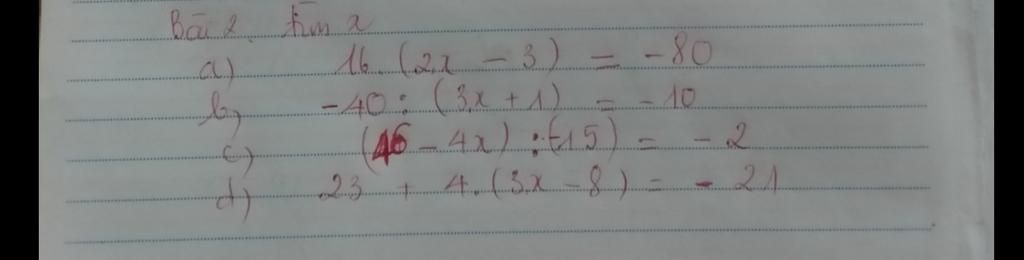 Bài 2. tìm x
a) 16. (2x - 3) = -80
b) -40 : (3x + 1) = -10
c) (46 - 4x) : (-15) = -2
d) 23 + 4. (3x - 8) = - 21